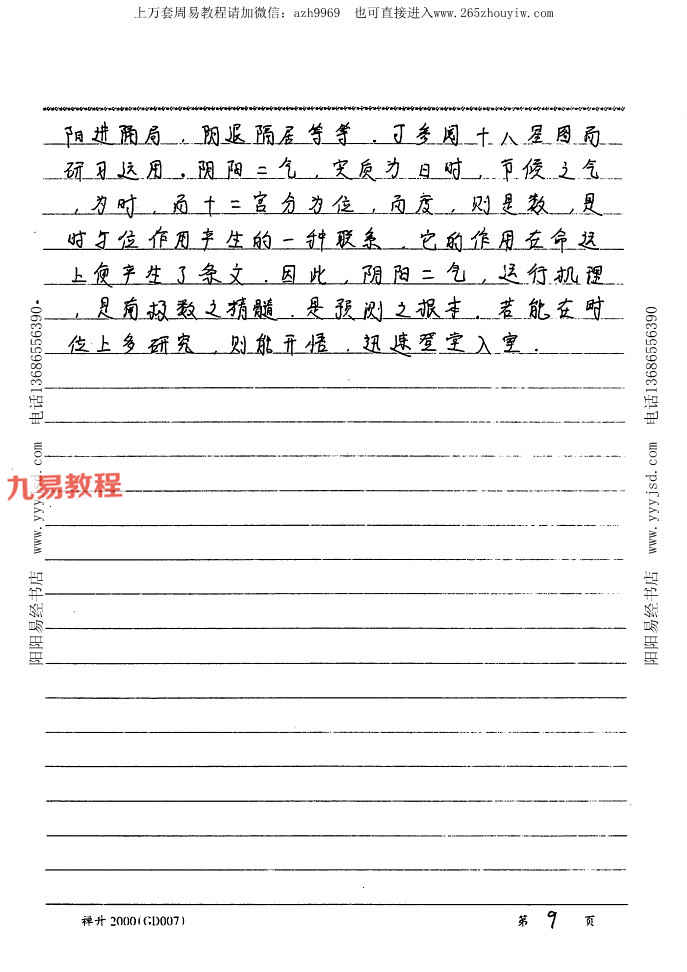 上万套周易教程请加微信：azh9969 也可直接进入www.265zhouyiw.com
阳进隔局，阴退隔居等等．可参阅十八星图而
研习运用．阴阳二气，实质为日时，节候之气
，为时，而十二宫分为位，而度，则是数，是
时与位作用产生的一种联系．它的作用在命运
上便产生了条文．因此，阴阳二气，运行机理
，是南极数之精髓．是预测之根本．若能在时
位上多研究，则能开悟．迅速登堂入室．
九易教程
阳阳易经书店 www.yyyjsd.com 电话13686556390
阳阳易经书店 www.yyyjsd.com 电话13686556390
禅升2000(GD007)
第 9 页